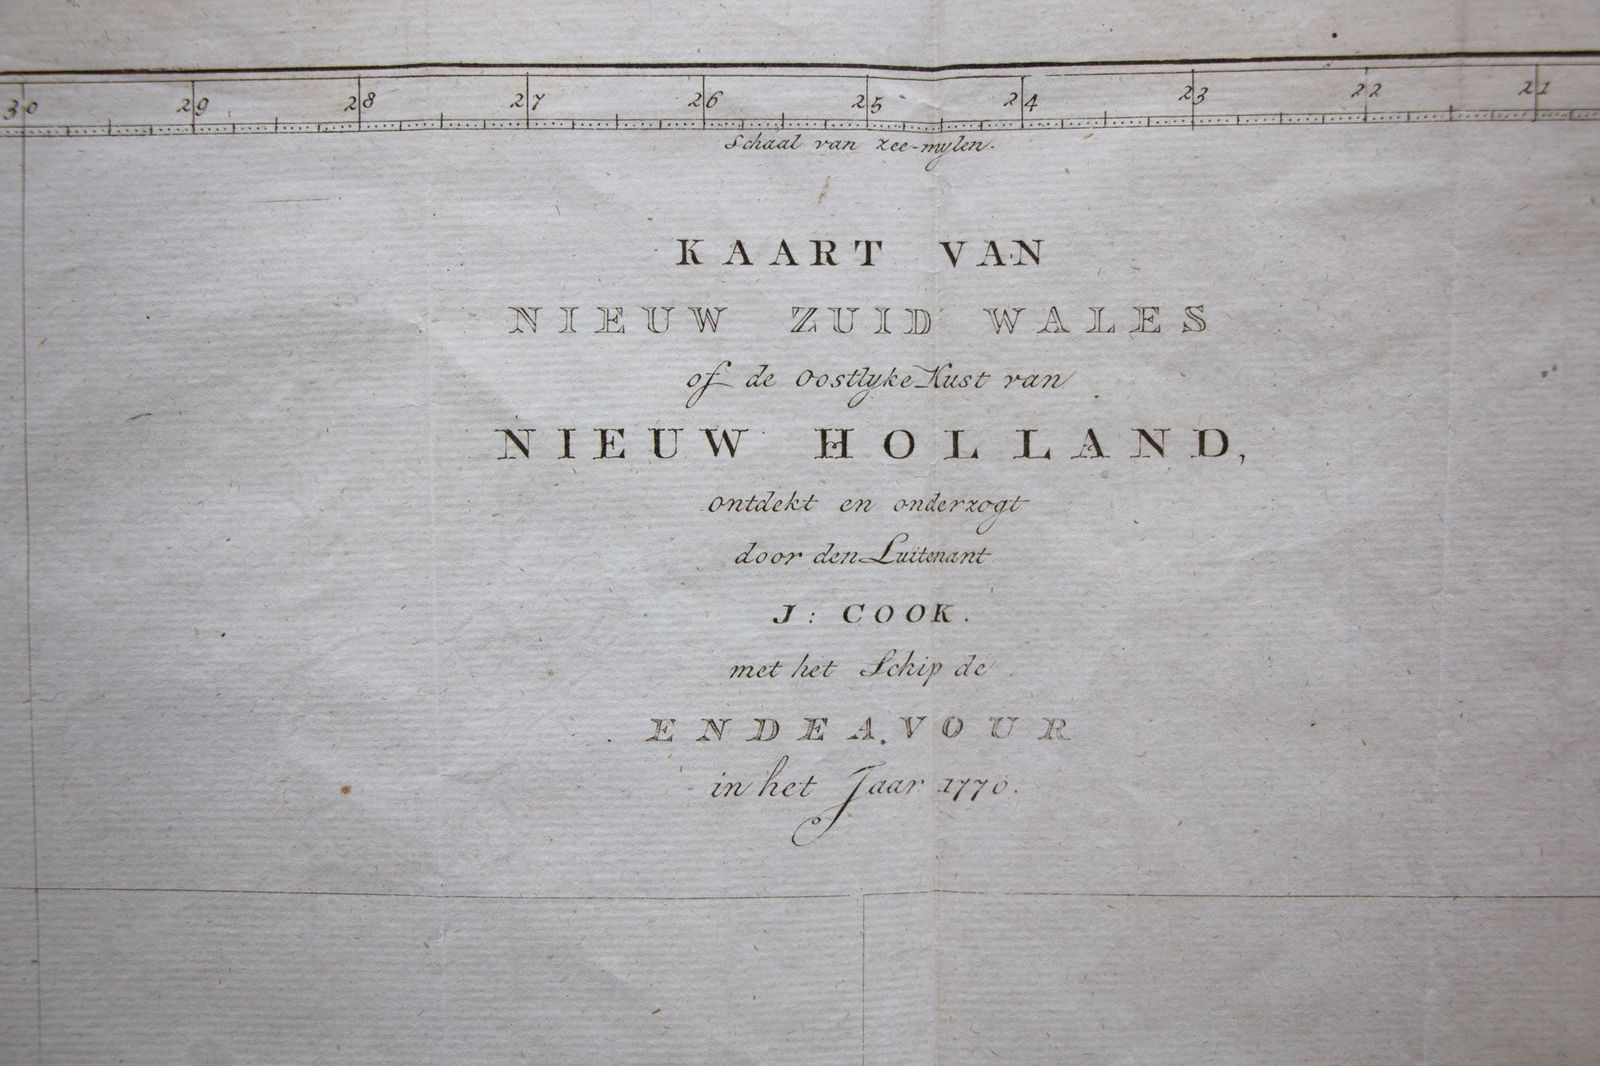 30 29 28 27 26 25 24 23 22 21
Schaal van zee-mylen.
KAART VAN
NIEUW ZUID WALES
of de Oostlyke Kust van
NIEUW HOLLAND,
ontdekt en onderzogt
door den Luitenant
J: COOK.
met het Schip de
ENDEAVOUR
in het Jaar 1770.